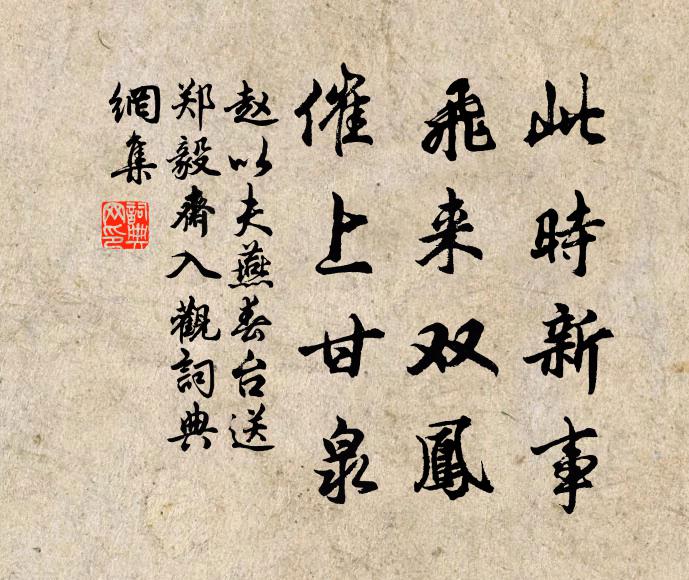 此時新事
飛来双鳳
催上甘泉
赵以夫燕春台送
郑毅齋入觀詞典
網集
詞典
网印